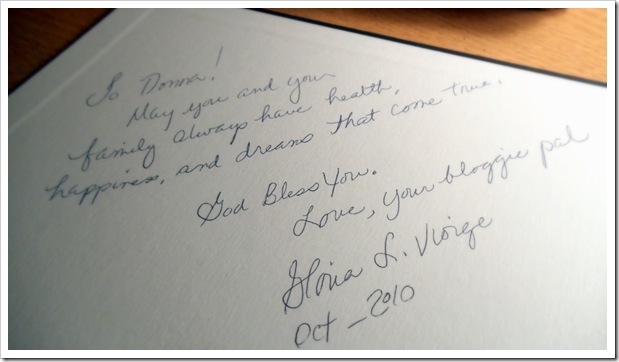 To Donna!
May you and your
family always have health,
happiness, and dreams that come true.
God Bless You.
Love, your bloggie pal
Gloria L. Vierge
Oct - 2010